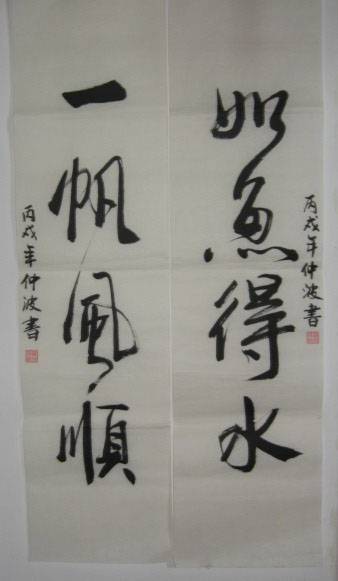 如魚得水
丙戌年仲波書
一帆風順
丙戌年仲波書